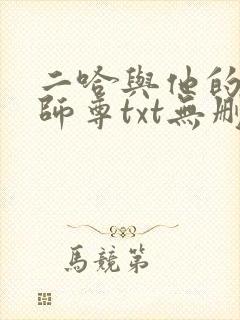 二哈與他的
師尊txt無刪
馬競第